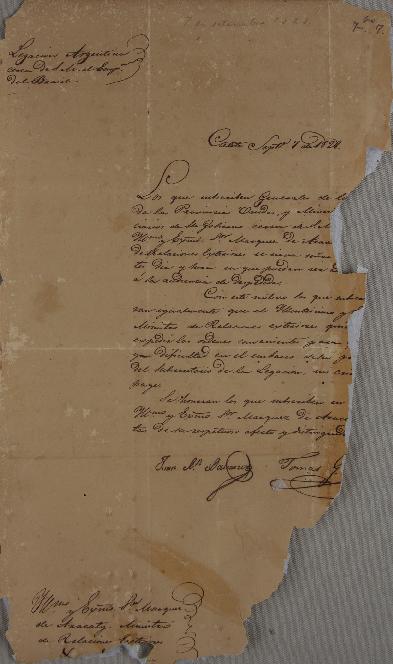 7 de setembro 1828
7
Legacion Argentina
cerca de S. M. el Emp.or
del Brasil.
Catete Sept.e 7 de 1828.
Los que subscriben Generales de
de la Provincia Unidas, y Minis
de su Gobierno cerca de S. M.
Illmo. y Exmo. S.or Marques de Arac
de Relaciones Exteriores se sirva
dia y hora en que puedan ser
á la audiencia de despedida.
Con este motivo los que subsc
igualmente que el Illustrisimo y
Ministro de Relaciones exteriores
expedir las ordenes convenientes para
dificultad en el embarco
del Secretario de la Legacion, su
page.
Se honran los que subscriben en
Illmo. y Exmo. S.or Marques de Arac
de su respetuoso afecto y distinguida
Juan R.n Balcarce Tomas G
Illmo. y Exmo. S.or Marques
de Aracaty, Ministro
de Relaciones Exteriores